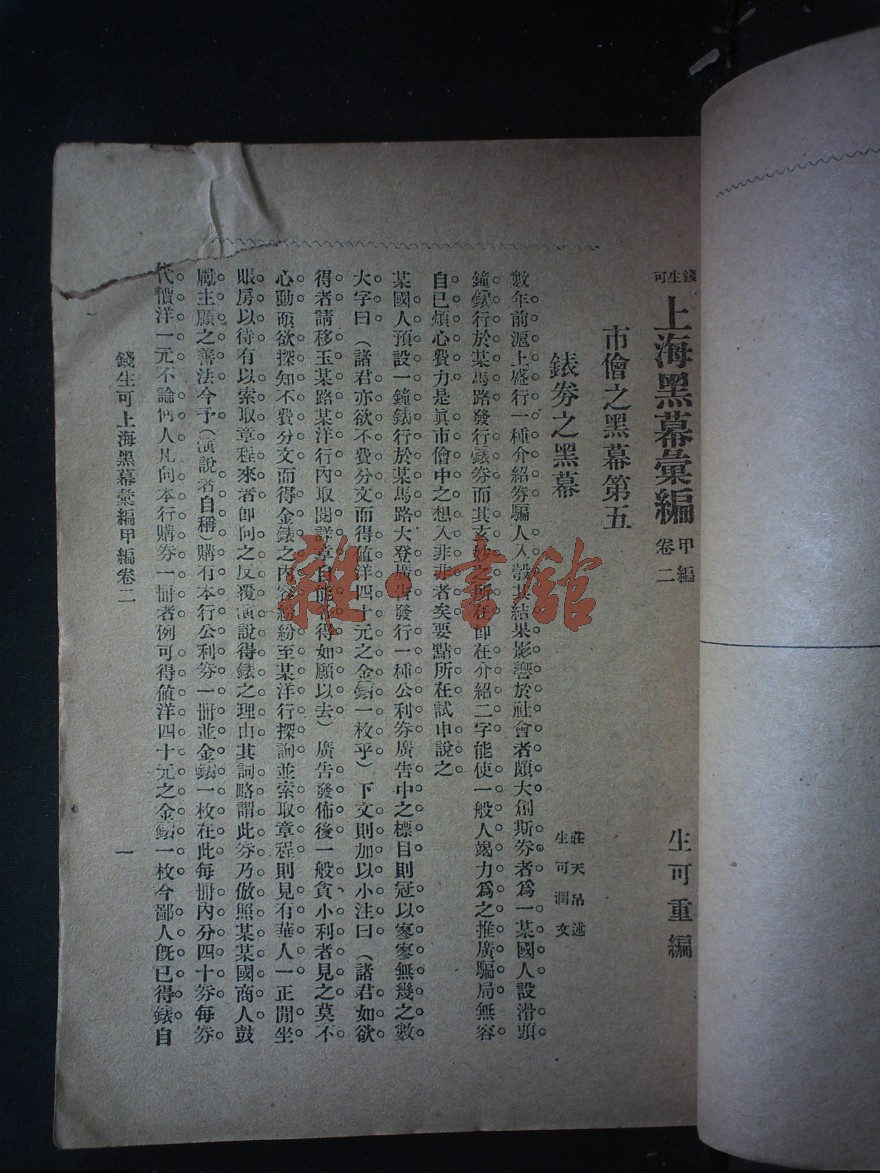 錢生可上海黑幕彙編甲編卷二
生可重編
市儈之黑幕第五
錶券之黑幕
莊天吊述
生可潤文
數年前滬上盛行一種介紹券騙人入彀其結果影響於社會者頗大創斯券者為一某國人設滑頭
鐘錶行於某馬路發行錶券而其玄妙之所在卽在介紹二字能使一般人竭力爲之推廣騙局無容
自己煩心費力是眞市儈中之想入非非者矣要點所在試申說之
某國人預設一鐘錶行於某馬路大登廣告發行一種公利券廣告中之標目則冠以寥寥無幾之數
大字曰(諸君亦欲不費分文而得値洋四十元之金錶一枚乎)下文則加以小注曰(諸君如欲
得者請移玉某路某洋行內取閱詳章自能得如願以去)廣告發佈後一般貪小利者見之莫不
心動亟欲探知不費分文而得金錶之內容紛紛至某洋行探詢並索取章程則見有華人一正閒坐
賬房以待有以索取章程來者卽向之反覆演說得錶之理由其詞略謂此券乃倣照某某國商人鼓
勵主顧之善法今予(演說者自稱)購有本行公利券一冊並金錶一枚在此每冊內分四十券每券
代價洋一元不論何人凡向本行購券一冊者例可得値洋四十元之金錶一枚今鄙人旣已得錶自
錢生可上海黑幕彙編甲編卷二
一
雜·書館